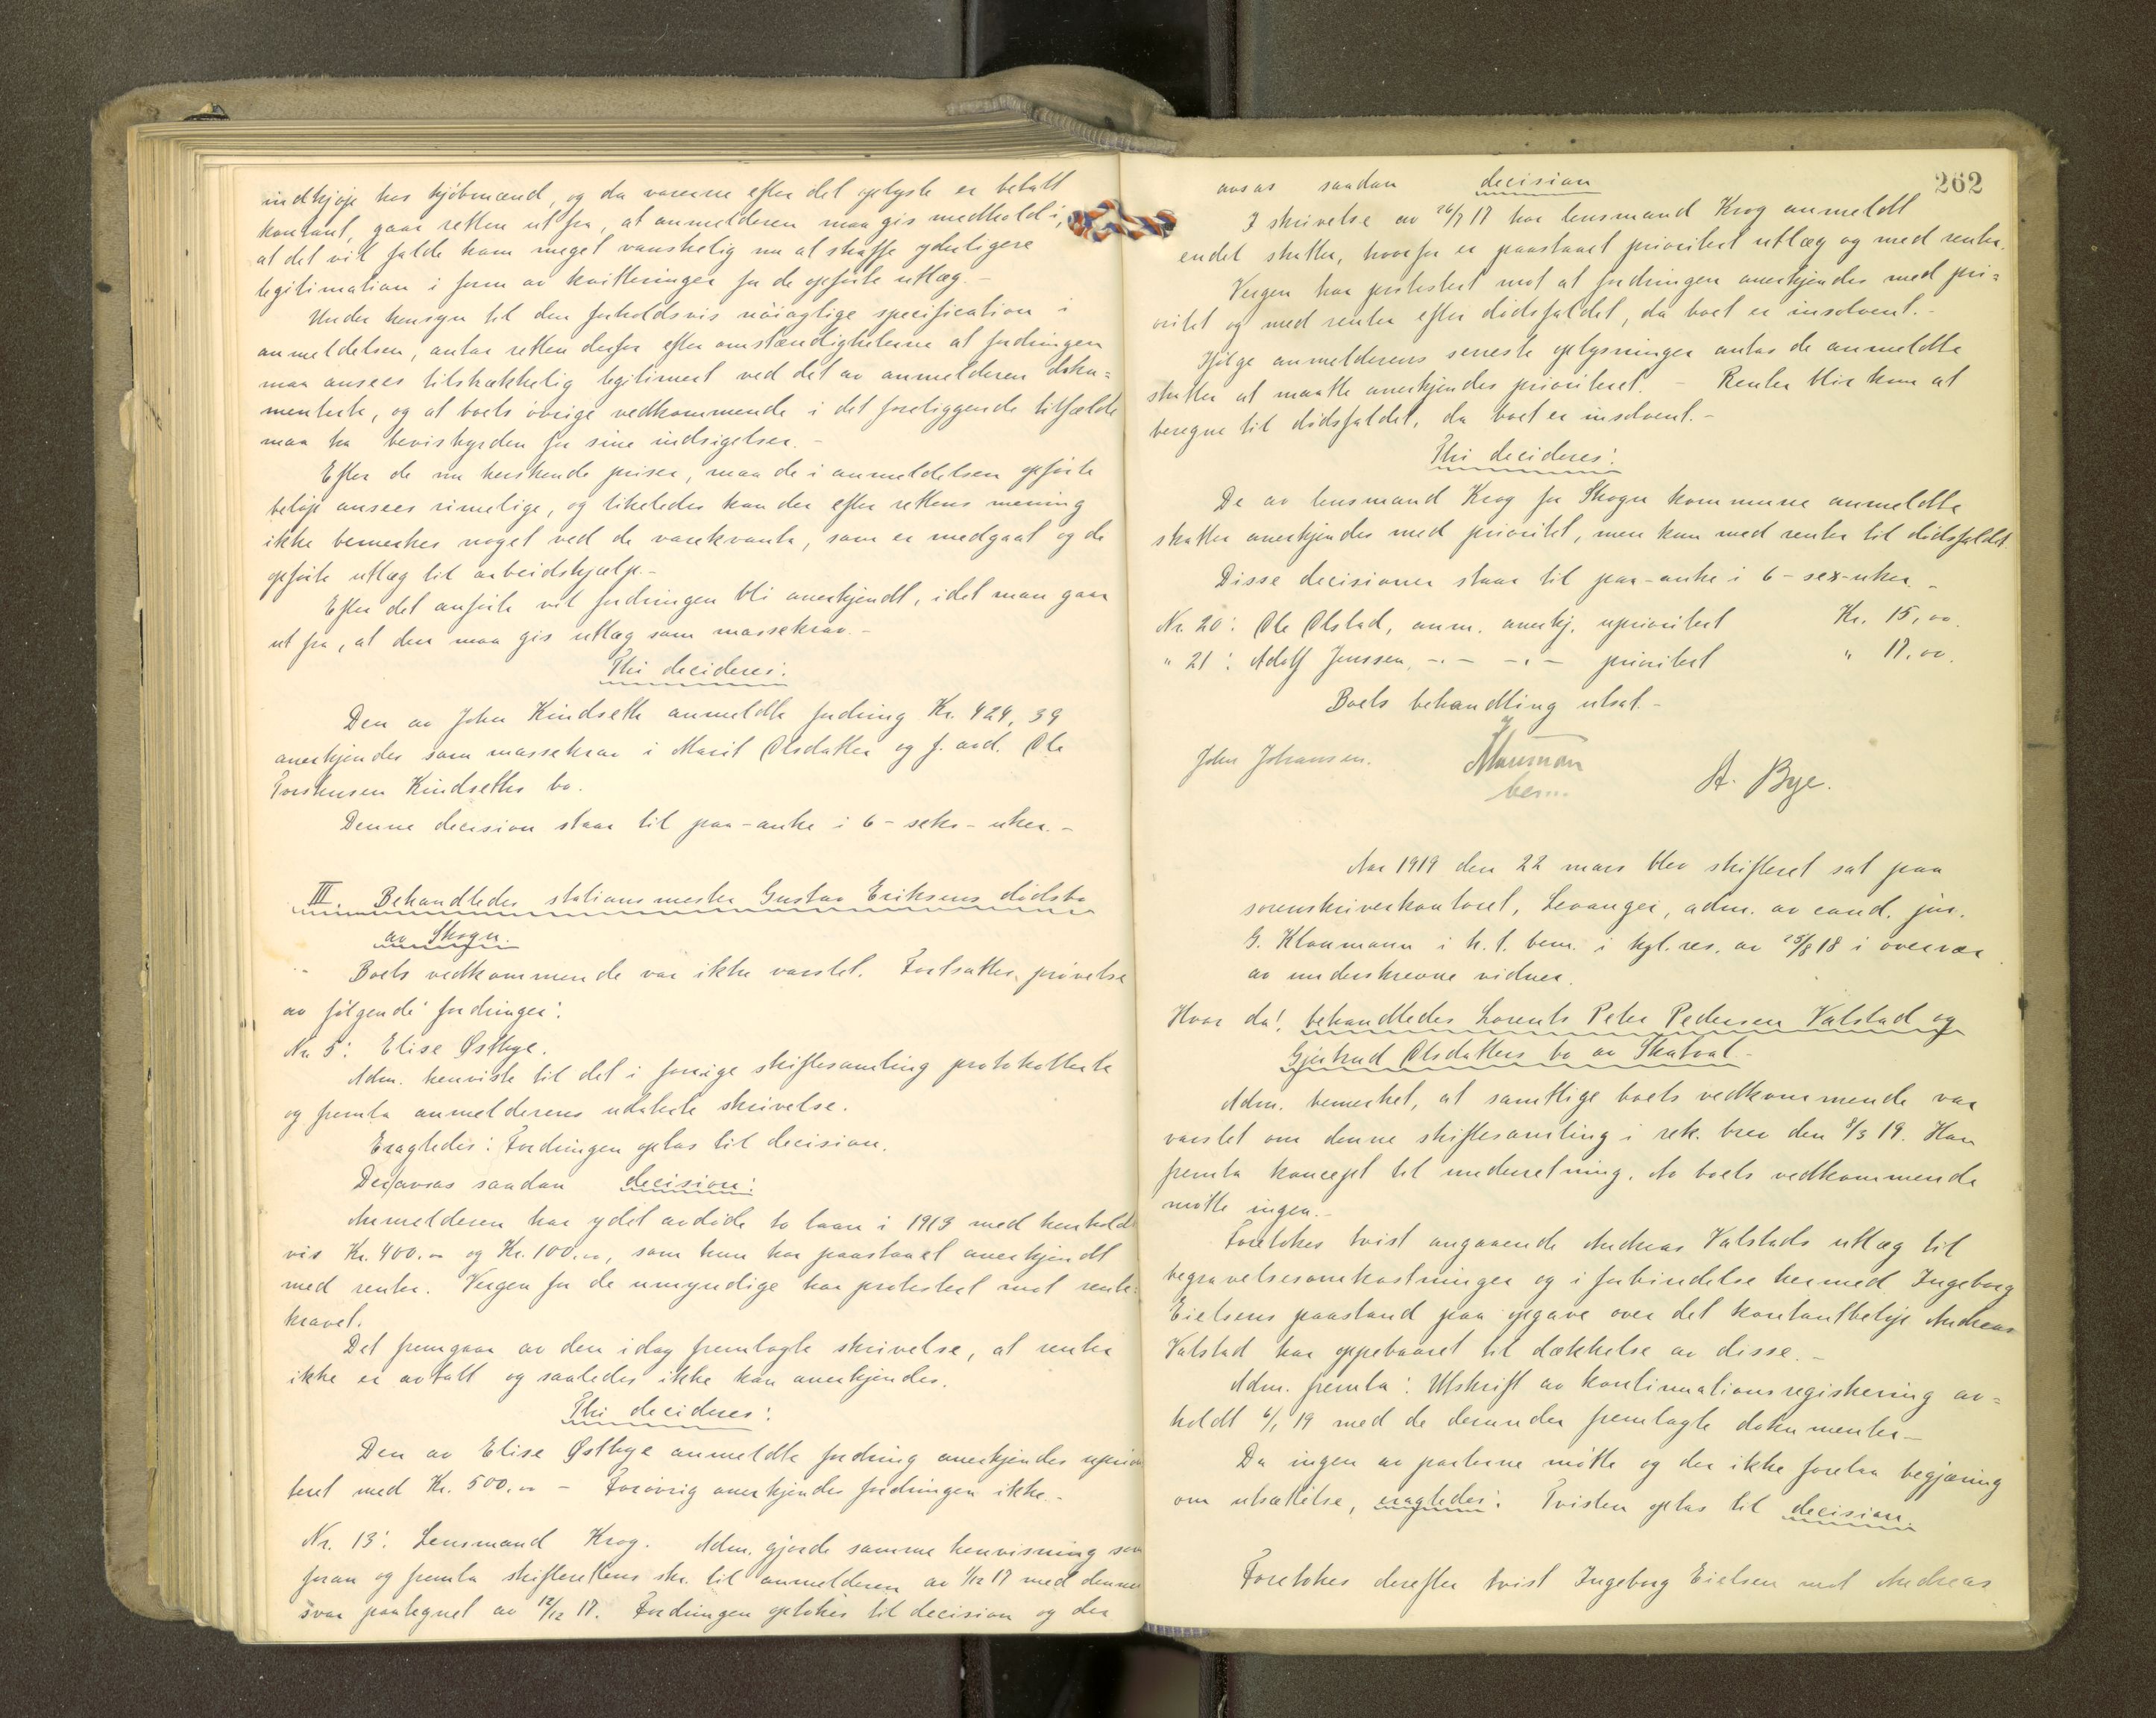 indkjøp hos kjøbmænd, og da varerne efter det oplyste er betalt
kontant, gaar retten ut fra, at anmelderen maa gis medhold i,
at det vil falde ham meget vanskelig nu at skaffe yderligere
legitimation i form av kvitteringer for de opførte utlæg.-
Under hensyn til den forholdsvis nöiagtige specification i
anmeldelsen, antar retten derfor efter omstændigheterne at fordringen
maa ansees tilstrækkelig legitimert ved det av anmelderen doku=
menterte, og at boets övrige vedkommende i det foreliggende tilfælde
maa ha bevisbyrden for sine indsigelser.-
Efter de nu herskende priser, maa de i anmeldelsen opførte
beløp ansees rimelige, og likeledes kan der efter rettens mening
ikke bemerkes noget ved de varekvanta, som er medgaat og de
opførte utlæg til arbeidshjælp.-
Efter det anførte vil fordringen bli anerkjendt, idet man gaar
ut fra, at den maa gis utlæg som massekrav.-
Thi decideres:
Den av John Kindseth anmeldte fordring Kr. 424,39
anerkjendes som massekrav i Marit Olsdatter og f. avd. Ole
Torstensen Kindseths bo.
Denne decision staar til paa-anke i 6-seks-uker.-
III. Behandledes stationsmester Gustav Eriksens dødsbo
av Skogn.
Boets vedkommende var ikke varslet. Fortsattes prøvelse
av følgende fordringer:
Nr. 5: Elise Østbye.
Adm. henviste til det i forrige skiftesamling protokollerte
og fremla anmelderens udaterte skrivelse.
Eragtedes: Fordringen optas til decision.
Der avsas saadan decision:
Anmelderen har ydet avdøde to laan i 1913 med henhold
vis Kr. 400.00 og Kr. 100.00, som hun har paastaaet anerkjendt
med renter. Vergen for de umyndige har protestert mot rente-
kravet.
Det fremgaar av den idag fremlagte skrivelse, at renter
ikke er avtalt og saaledes ikke kan anerkjendes.
Thi decideres:
Den av Elise Østbye anmeldte fordring anerkjendes uprio
teret med Kr. 500.00 - Forøvrig anerkjendes fordringen ikke.-
Nr. 13: Lensmand Krog. Adm. gjorde samme henvisning som
foran og fremla skifterettens skr. til anmelderen av 1/12 17 med dennes
svar paategnet av 12/12 17. Fordringen optokes til decision og der
262
avsas saadan decision
I skrivelse av 26/7 17 har lensmand Krog anmeldt
endel skatter, hvorfor er paastaaet prioritert utlæg og med renter.
Vergen har protestert mot at fordringen anerkjendes med pri=
oritet og med renter efter dødsfaldet, da boet er insolvent.-
Ifølge anmelderens seneste oplysninger antas de anmeldte
skatter at maatte anerkjendes prioriteret. - Renter blir kun at
beregne til dødsfaldet, da boet er insolvent.-
Thi decideres:
De av lensmand Krog for Skogn kommune anmeldte
skatter anerkjendes med prioritet, men kun med renter til dødsfaldet.
Disse decisioner staar til paa-anke i 6-sex-uker.-
Nr. 20: Ole Olstad, anm. anerkj. uprioritert Kr. 15,00.
" 21: Adolf Jenssen -.- -.- prioritert " 17.00.
Boets behandling utsat.-
John Johansen.
St. Bye.
Aar 1919 den 22 mars blev skifteret sat paa
sorenskriverkontoret, Levanger, adm. av cand. jur.
G. Klaumann i h. t. bem. i kgl. res. av 25/8 18 i overvær
av underskrevne vidner.
Hvor da: behandledes Lorents Peter Pedersen Valstad og
Gjertrud Olsdatters bo av Skatval.-
Adm. bemerket, at samtlige boets vedkommende var
varslet om denne skiftesamling i rek. brev den 8/3 19. Han
fremla koncept til underretning. Av boets vedkommende
møtte ingen.-
Foretokes tvist angaaende Andreas Valstads utlæg til
begravelsesomkostninger og i forbindelse hermed Ingeborg
Eielsens paastand paa opgave over det kontantbeløp Andreas
Valstad har oppebaaret til dækkelse av disse.-
Adm. fremla: Utskrift av kontinuationsregistrering av=
holdt 6/1 19 med de derunder fremlagte dokumenter-
Da ingen av parterne møtte og der ikke forelaa begjæring
om utsættelse, eragtedes: Tvisten optas til decision.
Foretokes derefter tvist Ingeborg Eielsen mot Andreas